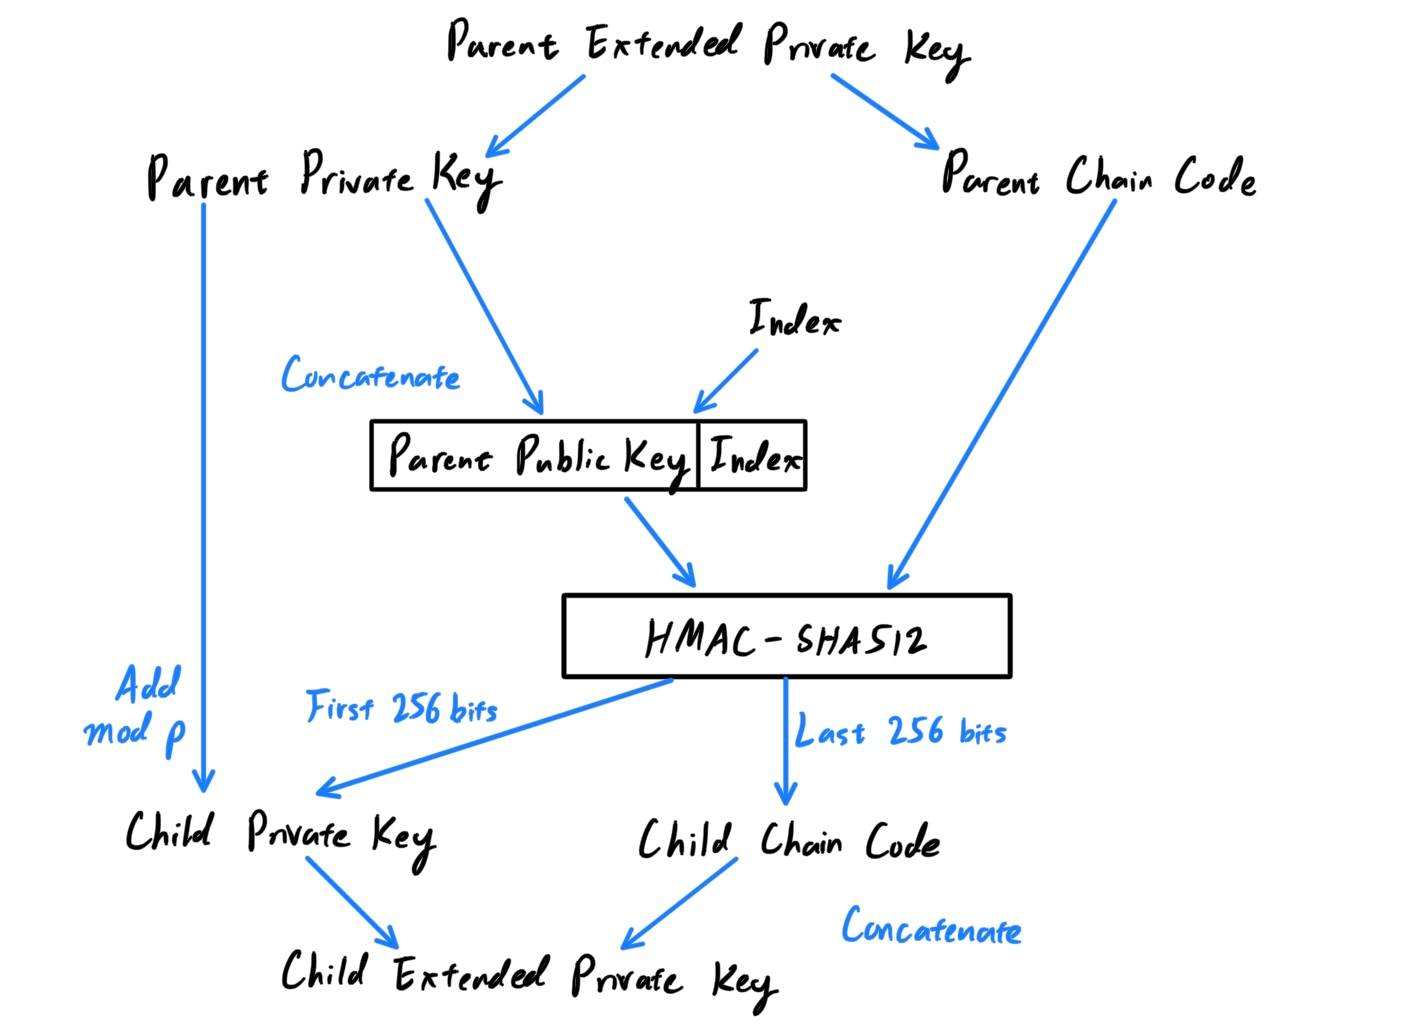 Parent Extended Private Key
Parent Private Key
Parent Chain Code
Index
Concatenate
Parent Public Key
Index
HMAC-SHA512
Add
mod p
First 256 bits
Last 256 bits
Child Private Key
Child Chain Code
Concatenate
Child Extended Private Key